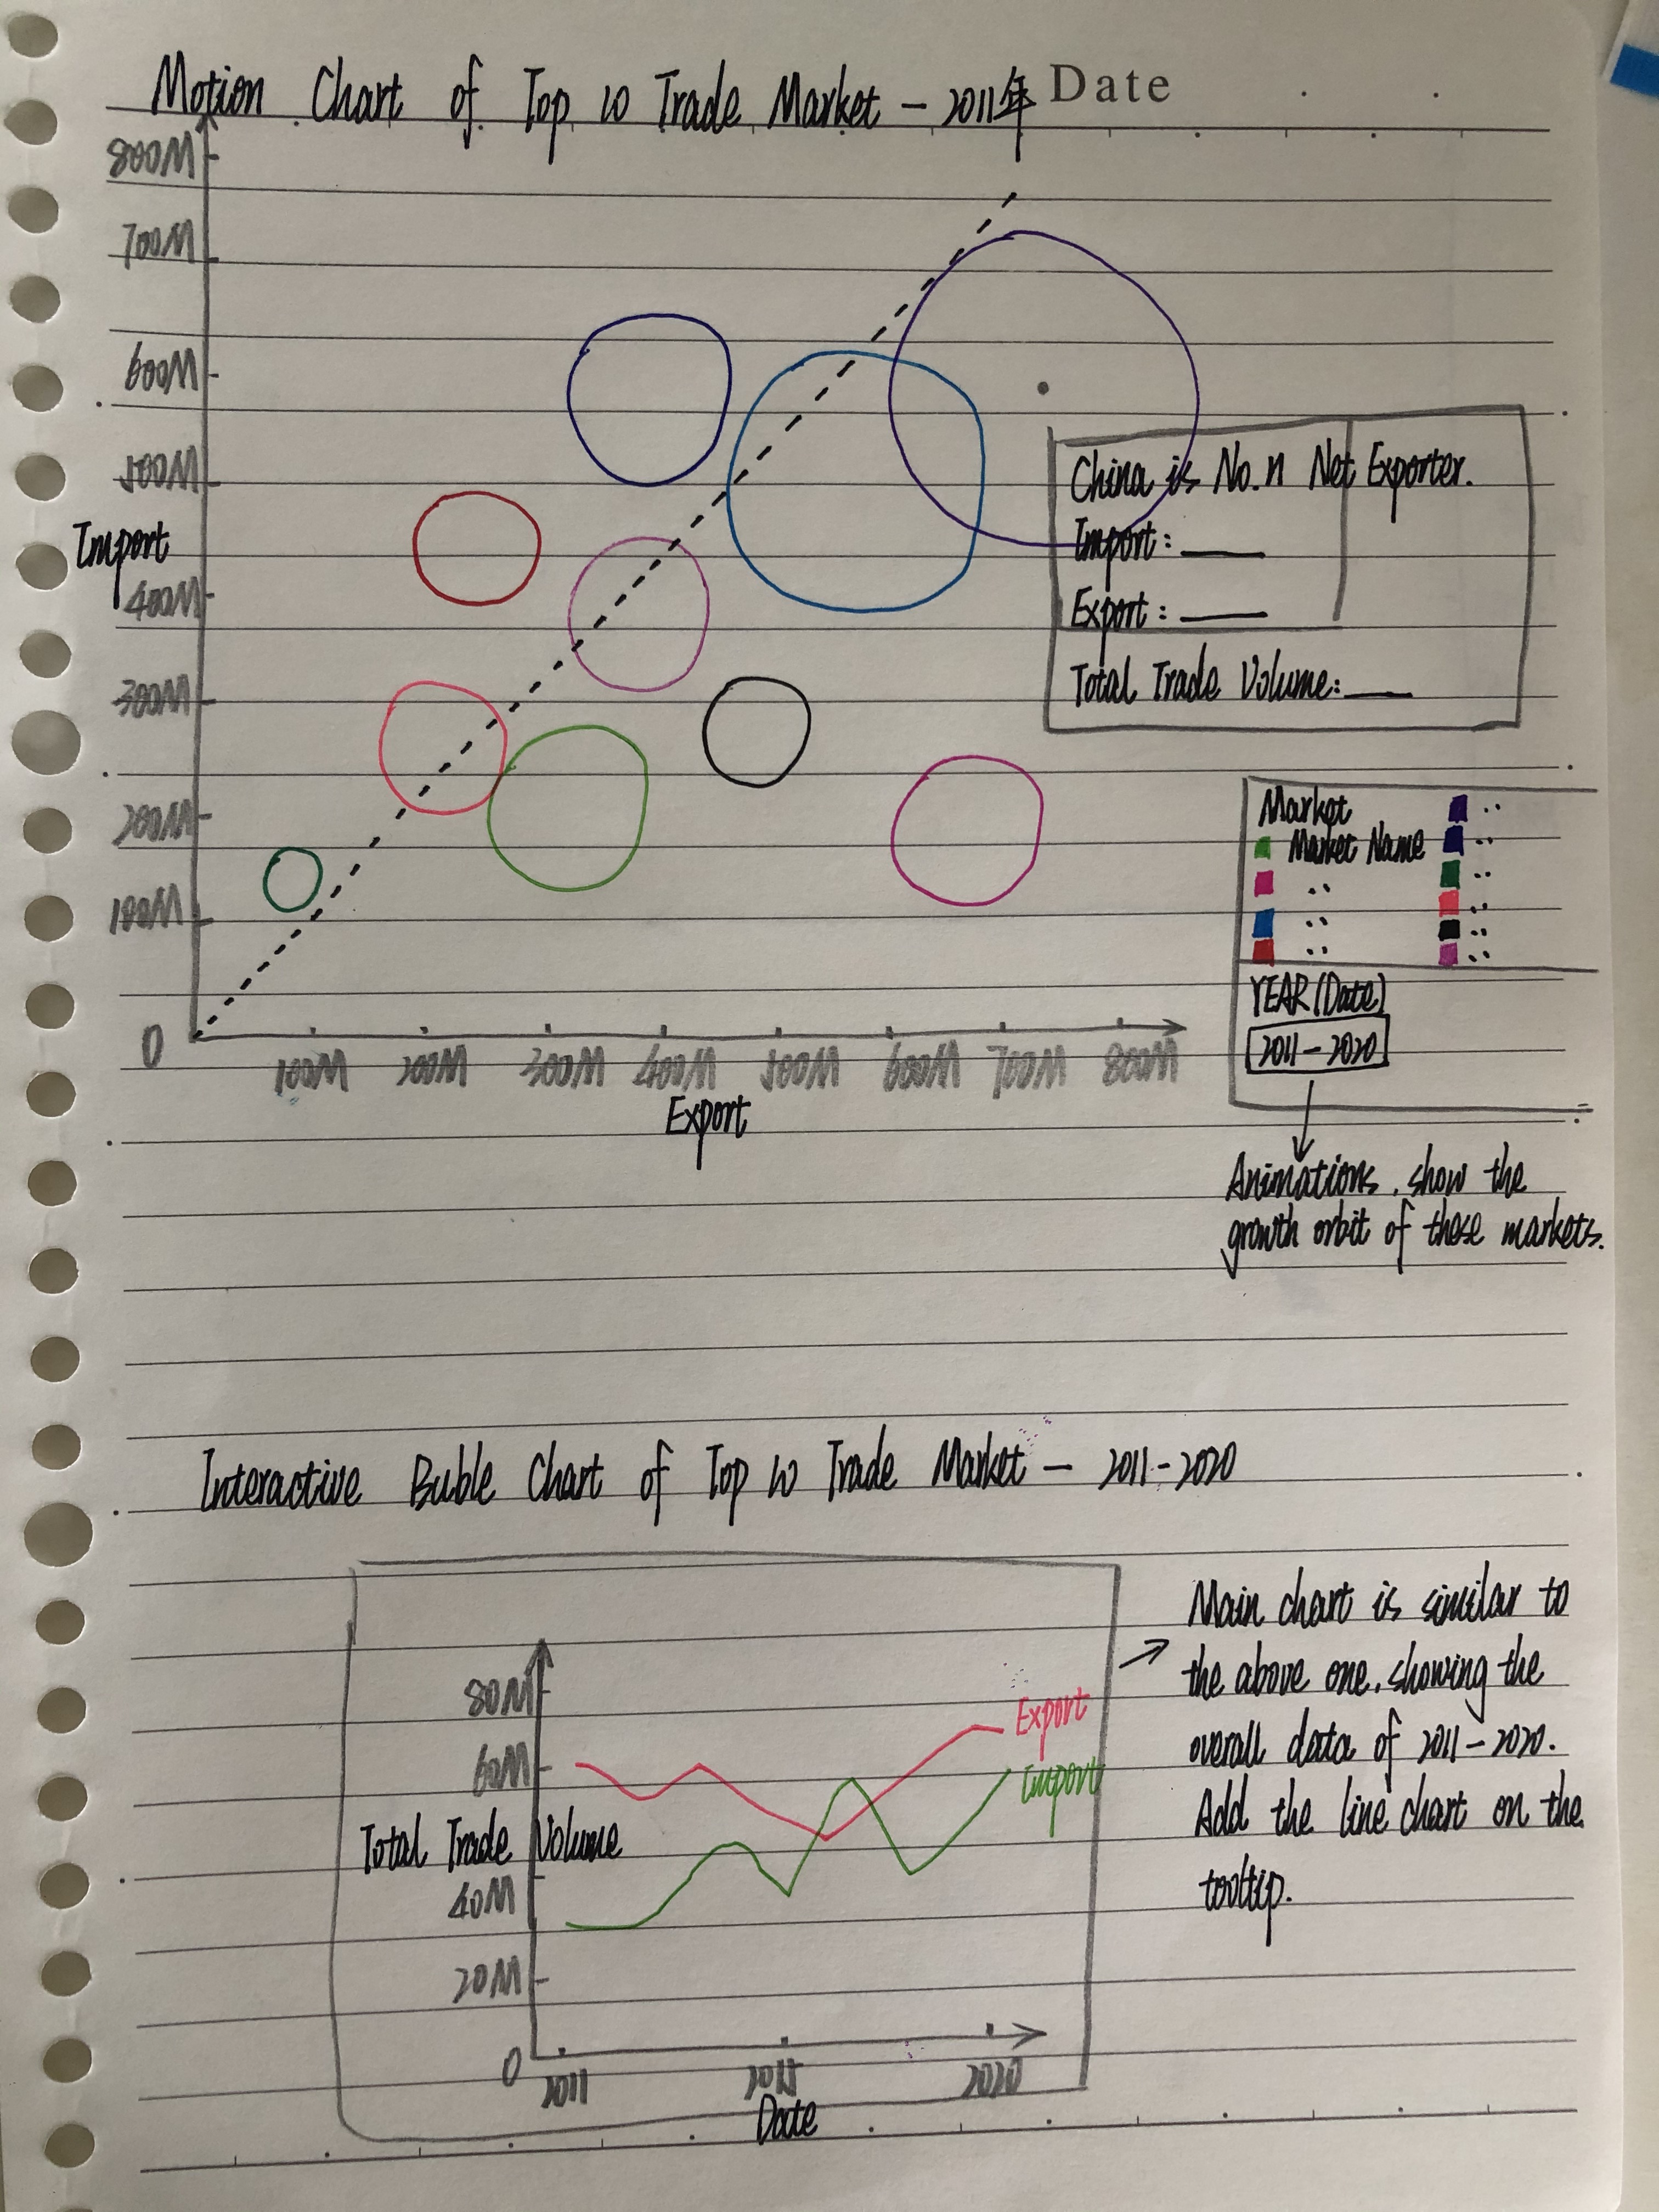 Motion Chart of Top 10 Trade Market – 2011年
Date
800M
700M
600M
500M
Import
400M
300M
200M
100M
0
100M 200M 300M 400M 500M 600M 700M 800M
Export
China is No.n Net Exporter.
Import:
Export:
Total Trade Volume:
Market
Market Name
YEAR (Date)
2011 – 2020
Animations, show the
growth orbit of these markets.
Interactive Buble Chart of Top 10 Trade Market – 2011-2020
80M
60M
Total Trade Volume
40M
20M
0
2011 2015 2020
Date
Export
Import
Main chart is similar to
the above one, showing the
overall data of 2011 – 2020.
Add the line chart on the
tooltip.